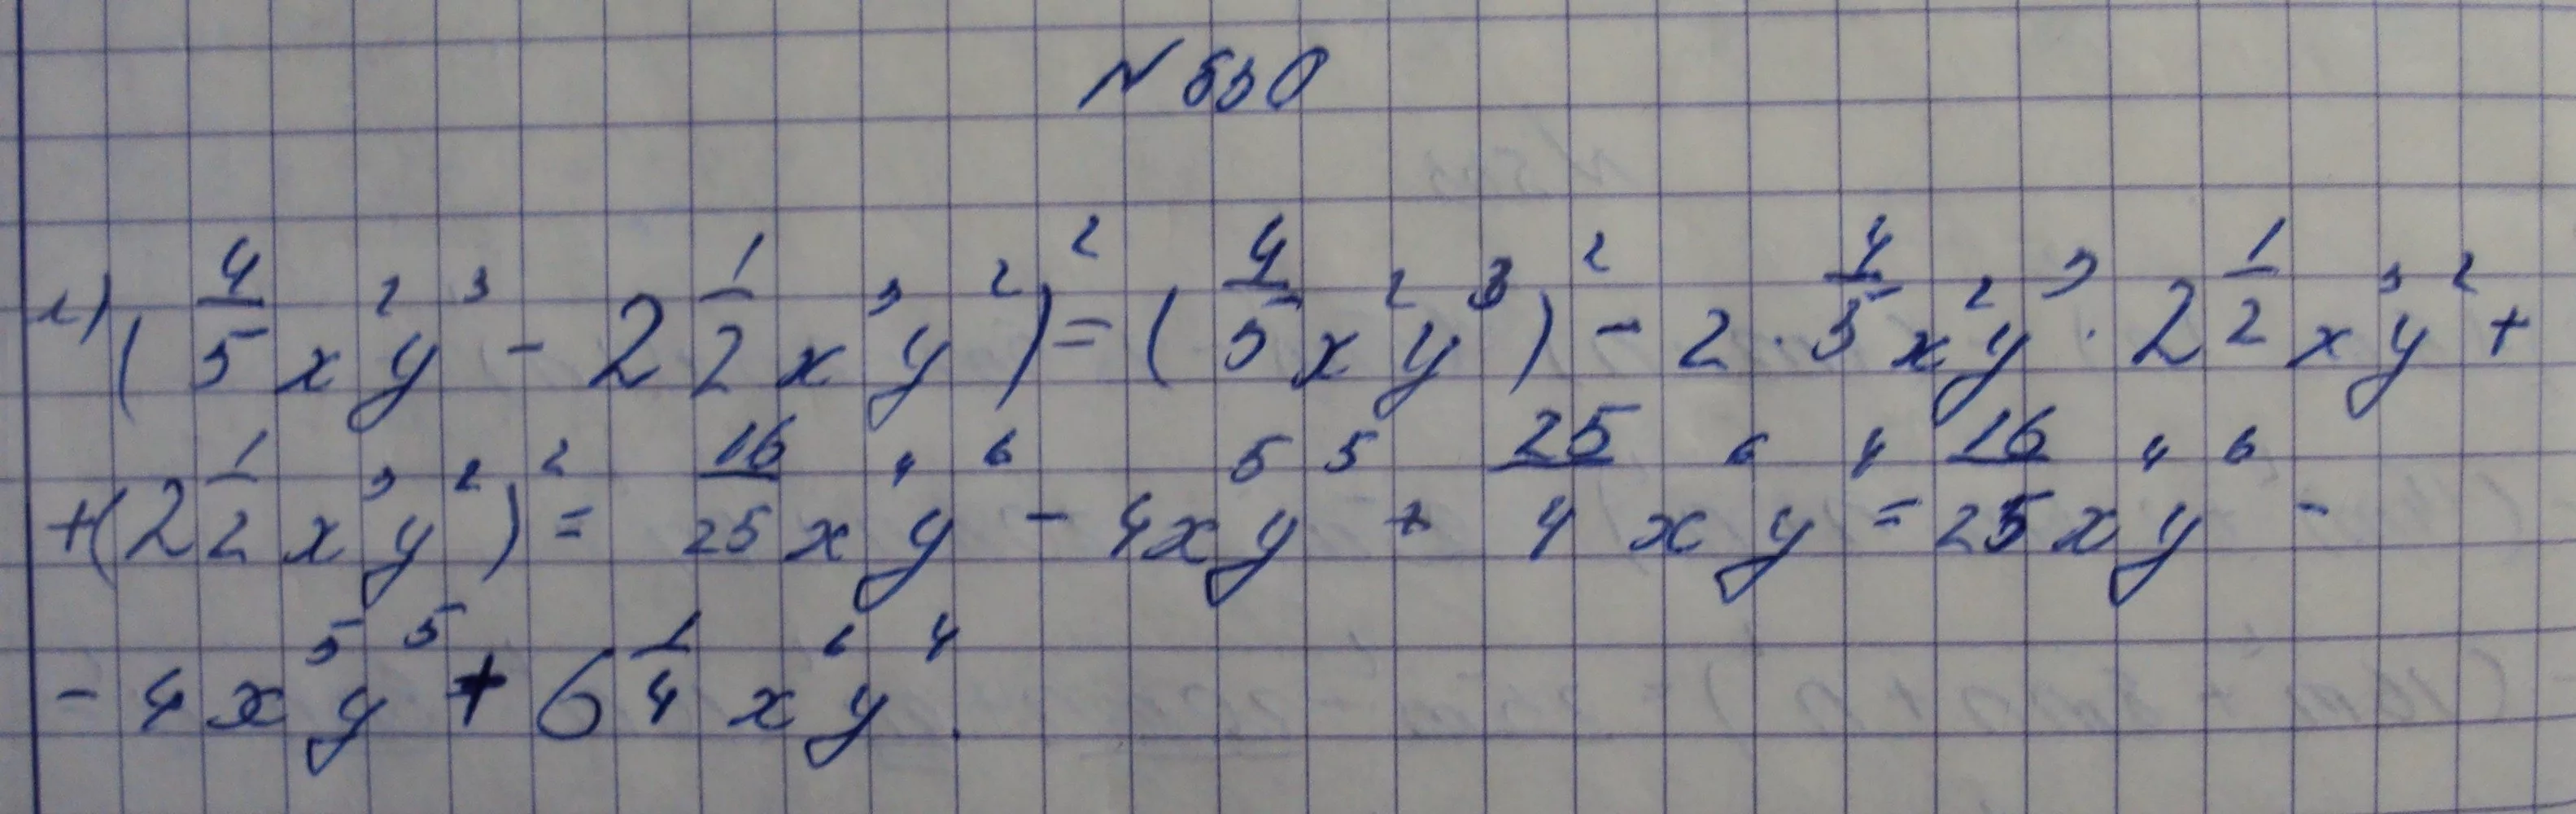 № 530
г) (4/5 x²y³ - 2 1/2 x³y²)² = (4/5 x²y³)² - 2 · 4/5 x²y³ · 2 1/2 x³y² +
+ (2 1/2 x³y²)² = 16/25 x⁴y⁶ - 4x⁵y⁵ + 25/4 x⁶y⁴ = 16/25 x⁴y⁶ -
- 4x⁵y⁵ + 6 1/4 x⁶y⁴.